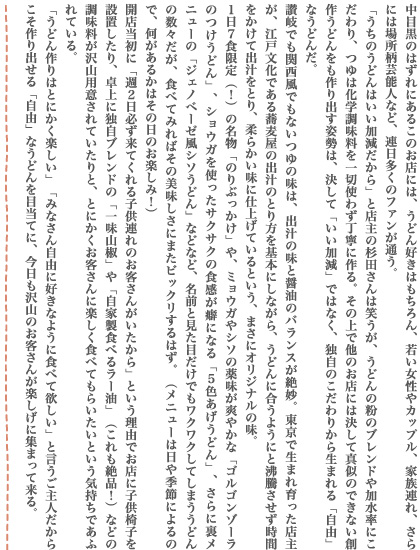 中目黒のはずれにあるこのお店には、うどん好きはもちろん、若い女性やカップル、家族連れ、さら
には場所柄芸能人など、連日多くのファンが通う。
「うちのうどんはいい加減だから」と店主の杉田さんは笑うが、うどんの粉のブレンドや加水率にこ
だわり、つゆは化学調味料を一切使わず丁寧に作る。その上で他のお店には決して真似のできない創
作うどんをも作り出す姿勢は、決して「いい加減」ではなく、独自のこだわりから生まれる「自由」
なうどんだ。
讃岐でも関西風でもないつゆの味は、出汁の味と醤油のバランスが絶妙。東京で生まれ育った店主
が、江戸文化である蕎麦屋の出汁のとり方を基本にしながら、うどんに合うようにと沸騰させず時間
をかけて出汁をとり、柔らかい味に仕上げているという、まさにオリジナルの味。
1日7食限定（！）の名物「のりぶっかけ」や、ミョウガやシソの薬味が爽やかな「ゴルゴンゾーラ
のつけうどん」、ショウガを使ったサクサクの食感が癖になる「5色あげうどん」、さらに裏メ
ニューの「ジェノベーゼ風シソうどん」などなど、名前と見た目だけでもワクワクしてしまううどん
の数々だが、食べてみればその美味しさにまたビックリするはず。（メニューは日や季節によるの
で、何があるかはその日のお楽しみ！）
開店当初に「週2日必ず来てくれる子供連れのお客さんがいたから」という理由でお店に子供椅子を
設置したり、卓上に独自ブレンドの「一味山椒」や「自家製食べるラー油」（これも絶品！）などの
調味料が沢山用意されていたりと、とにかくお客さんに楽しく食べてもらいたいという気持ちであふ
れている。
「うどん作りはとにかく楽しい」「みなさん自由に好きなように食べて欲しい」と言うご主人だから
こそ作り出せる「自由」なうどんを目当てに、今日も沢山のお客さんが楽しげに集まって来る。